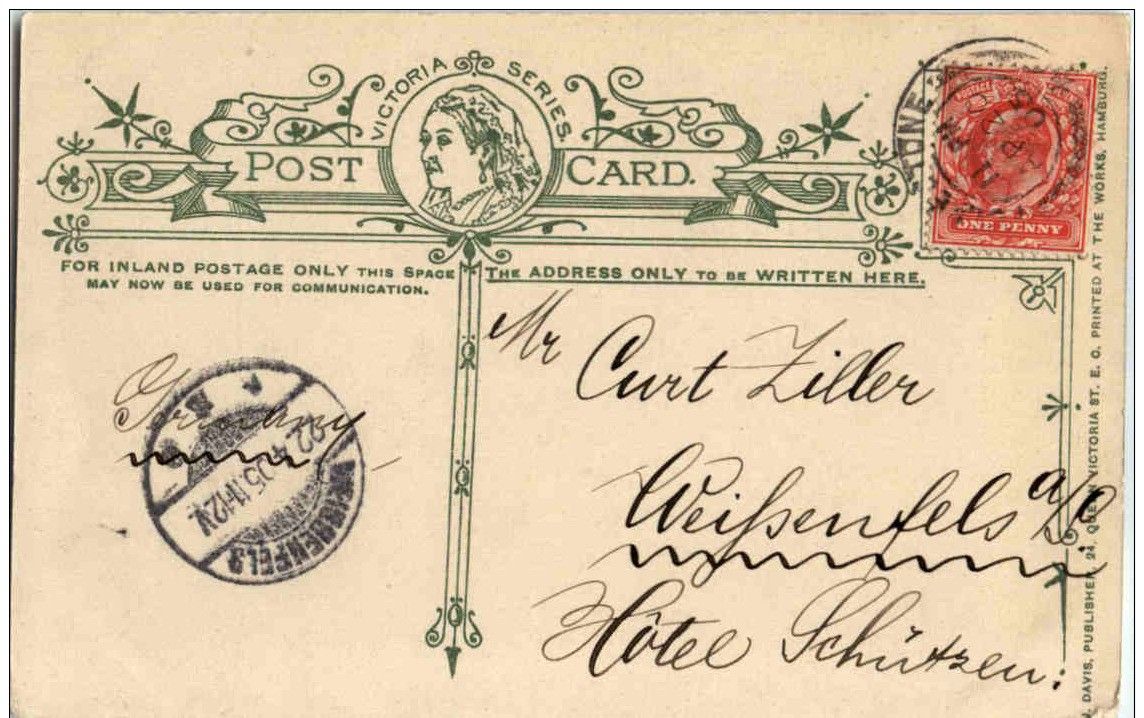 VICTORIA SERIES.
POST CARD.
ONE PENNY
FOR INLAND POSTAGE ONLY THIS SPACE
MAY NOW BE USED FOR COMMUNICATION.
THE ADDRESS ONLY TO BE WRITTEN HERE.
Mr Curt Ziller
Weißenfels a/S.
Hôtel Schützen:
Germany
WEISSENFELS
22.4.05.11-12V.
DAVIS, PUBLISHER, 24, QUEEN VICTORIA ST. E. C. PRINTED AT THE WORKS, HAMBURG.